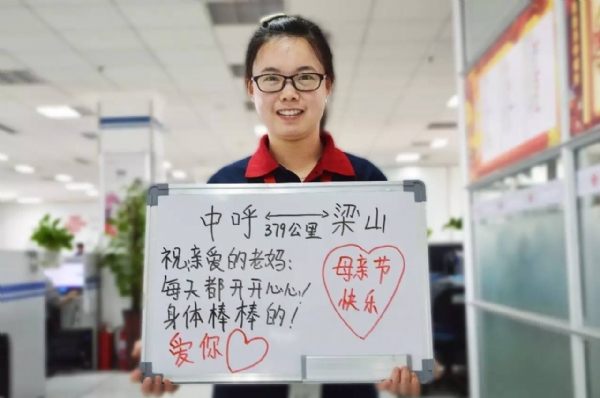 中呼 379公里 梁山
祝亲爱的老妈:
每天都开开心心!
身体棒棒的!
爱你
母亲节
快乐